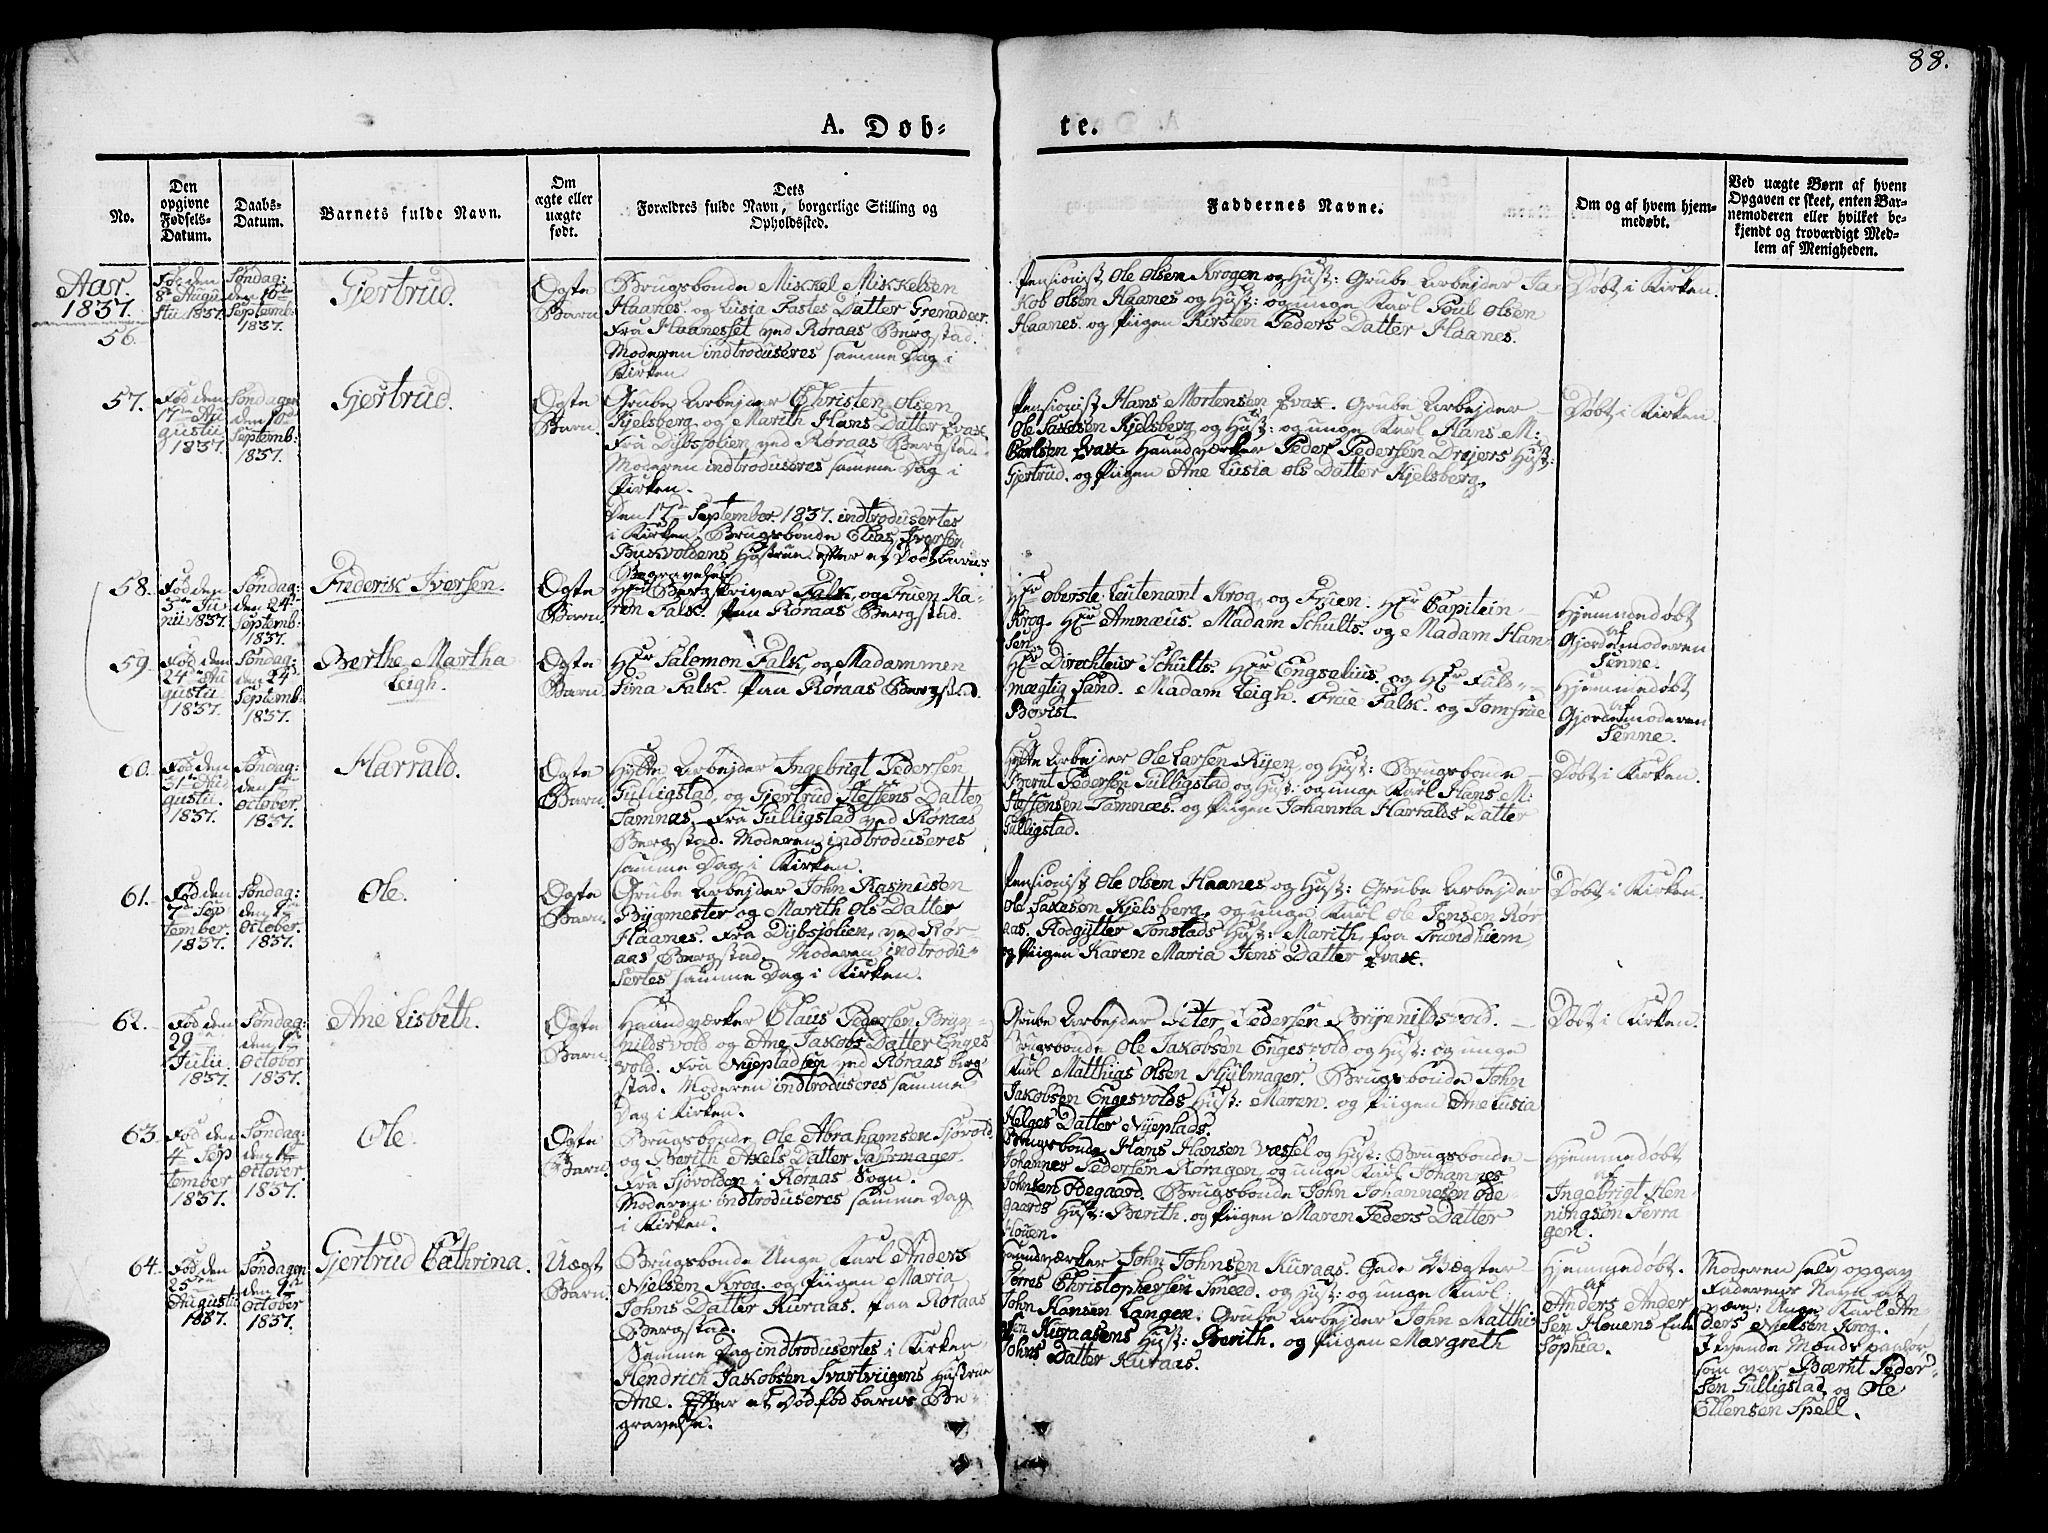 88.
A. Døb-
te.
No.
Den
opgivne
Fødsels-
Datum.
Daabs-
Datum.
Barnets fulde Navn.
Om
ægte eller
uægte
født.
Dets
Forældres fulde Navn, borgerlige Stilling og
Opholdssted.
Faddernes Navne.
Om og af hvem hjem-
medøbt.
Ved uægte Børn af hvem
Opgaven er skeet, enten Bar-
nemoderen eller hvilket be-
kjendt og troværdigt Med-
lem af Menigheden.
Aar
1837.
56.
Fød den
8de Augu
stii 1837.
Søndag:
den 10de
Septemb:
1837.
Gjertrud.
Ægte
Barn
Brugsbonde Mikkel Mikkelsen
Haanes. og Lusia Fastes Datter Grenadeer.
Fra Haanesset ved Røraas Bergstad.
Moderen indtroduseres samme Dag i
Kirken.
Pensionist Ole Olsen Krogen og Hust: Grube Arbejder Ja-
kob Olsen Haanes og Hust: og unge Karl Poul Olsen
Haanes. og Piigen Kirsten Peders Datter Haanes.
Døbt i Kirken.
57.
Fød den
17de Au
gustii
1837.
Søndagen
den 10de
Septemb:
1837.
Gjertrud.
Ægte
Barn.
Grube Arbejder Christen Olsen
Kjelsberg. og Marith Hans Datter Evax.
Fra Dybsjølien ved Røraas Bergstad.
Moderen indtroduseres samme Dag i
Kirken.
Den 17de September 1837. indtrodusertes
i Kirken, Brugsbonde Elias Iversen
Buskvoldens Hustrue. efter et Død
Begravelse.
Pensionist Hans Mortensen Evax. Grube Arbejder
Ole Saxesen Kjelsberg og Hust: og unge Karl Hans M:
Carlsen Evax Haandværker Peder Pedersen Drejers Hust:
Gjertrud. og Piigen Ane Lusia Ols Datter Kjelsberg.
Døbt i Kirken
58.
Fød den
5te Ju
nii 1837.
Søndag:
den 24
Septemb:
1837.
Frederisk Iversen.
Ægte
Barn.
Hr Bergskriver Falk, og Fruen Ka-
ren Falk. Paa Røraas Bergstad.
Hr Oberste Leutenant Krog, og Fruen. Hr Capitein
Krog. Hr Amnæus. Madam Schults. og Madam Han-
sen.
Hjemmedøbt
af
Gjordemoderen
Senne.
59.
Fød den
24de Au
gustii
1837.
Søndag:
den 24de
Septemb:
1837.
Berthe Martha
Leigh.
Ægte
Barn.
Hr Salomon Falk, og Madammen
Sina Falk. Paa Røraas Bergstad.
Hr Direchteur Schults. Hr Engselius. og Hr Fuld-
mægtig Sand. Madam Leigh. Frue Falk. og Jomfrue
Bovist.
Hjemmedøbt
af
Gjordemoderen
Senne.
60.
Fød den
31te Au
gustii.
1837.
Søndag:
den 1te
October.
1837.
Harrald.
Ægte
Barn.
Hytte Arbejder Ingebrigt Pedersen
Gulligstad, og Gjertrud Steffens Datter
Tamnæs. Fra Gulligstad ved Røraas
Bergstad. Moderen indtroduseres
samme Dag i Kirken.
Hytte Arbejder Ole Larsen Ryen og Hust: Brugsbonde
Bernt Pedersen Gulligstad og Hust: og unge Karl Hans M:
Steffensen Tamnæs. og Piigen Johanna Harralds Datter
Gulligstad.
Døbt i Kirken.
61.
Fød den
7de Sep
tember.
1837.
Søndag:
den 1te
October.
1837.
Ole.
Ægte
Barn.
Grube Arbejder John Rasmusen
Bygmester og Marith Ols Datter
Haanes. Fra Dybsjølien, ved Rør-
aas Bergstad. Moderen indtrodu-
sertes samme Dag i Kirken.
Pensionist Ole Olsen Haanes og Hust: Grube Arbejder
Ole Saxesen Kjelsberg, og unge Karl Ole Jensen Rør
aas. Rodgytter Tonstads Hust: Marith, fra Trundhiem
og Piigen Karen Maria Jens Datter Evax.
Døbt i Kirken.
62.
Fød den
29
Julii
1837.
Søndag:
den 1te
October
1837.
Ane Lisbith.
Ægte
Barn.
Haandværker Claus Pedersen Bryn-
nildsvold og Ane Jakobs Datter Enges
vold. Fra Nyepladsen ved Røraas Berg-
stad. Moderen indtroduseres samme
Dag i Kirken.
Grube Arbejder Siver Pedersen Brynnildsvold.
Brugsbonde Ole Jakobsen Engesvold og Hust: og unge
Karl Matthias Olsen Hjulmager. Brugsbonde John
Jakobsen Engesvolds Hust: Maren. og Piigen Ane Lusia
Helges Datter Nyeplads.
Døbt i Kirken.
63.
Fød den
4 Sep
tember
1837.
Søndag:
den 1te
October.
1837.
Ole.
Ægte
Barn.
Brugsbonde Ole Abrahamsen Sjøvold
og Berith Axels Datter
Fra Sjøvolden i Røraas Sogn.
Moderen indtroduseres samme Dag
i Kirken.
Brugsbonde Hans Hansen Vassel og Hust: Brugsbonde
Johannes Pedersen Koragen, og unge Karl Johannes
Johnsen Ødegaard. Brugsbonde John Johannesen Øde-
gaards Hust: Berith. og Piigen Maren Peders Datter
Houen.
Hjemmedøbt
af
Ingebrigt Hen-
ningsøn Ferra-
gen.
64.
Fød den
25de
Augustii
1837.
Søndagen
den 1te
October
1837.
Gjertrud Cathrina.
Uægt
Barn.
Brugsbonde Unge Karl Anders
Nielsen Krog. og Piigen Maria
Johns Datter Kuraas. Paa Røraas
Bergstad.
Samme Dag indtrodusertes i Kirken
Hendrich Jakobsen Svartviigens Hustrue
Ane. Efter et Dødfød barns Be-
gravelse.
Haandværker John Johnsen Kuraas. Gade Vægter
Torres Christophersen Smed. og Hust: og unge Karl
John Hansen Langen. Grube Arbejder John Matthi-
sen Kuraasens Hust: Berith. og Piigen Margreth
Johns Datter Kuraas.
Hjemmedøbt.
af
Anders Ander
sen Houens Enke
Sophia.
Moderen selv opgav
Faderens Navn at
være: Unge Karl An-
ders Nielsen Krog.
som var Bærnt Peder-
sen Gulligstad. og Ole
Ellensen Spell.